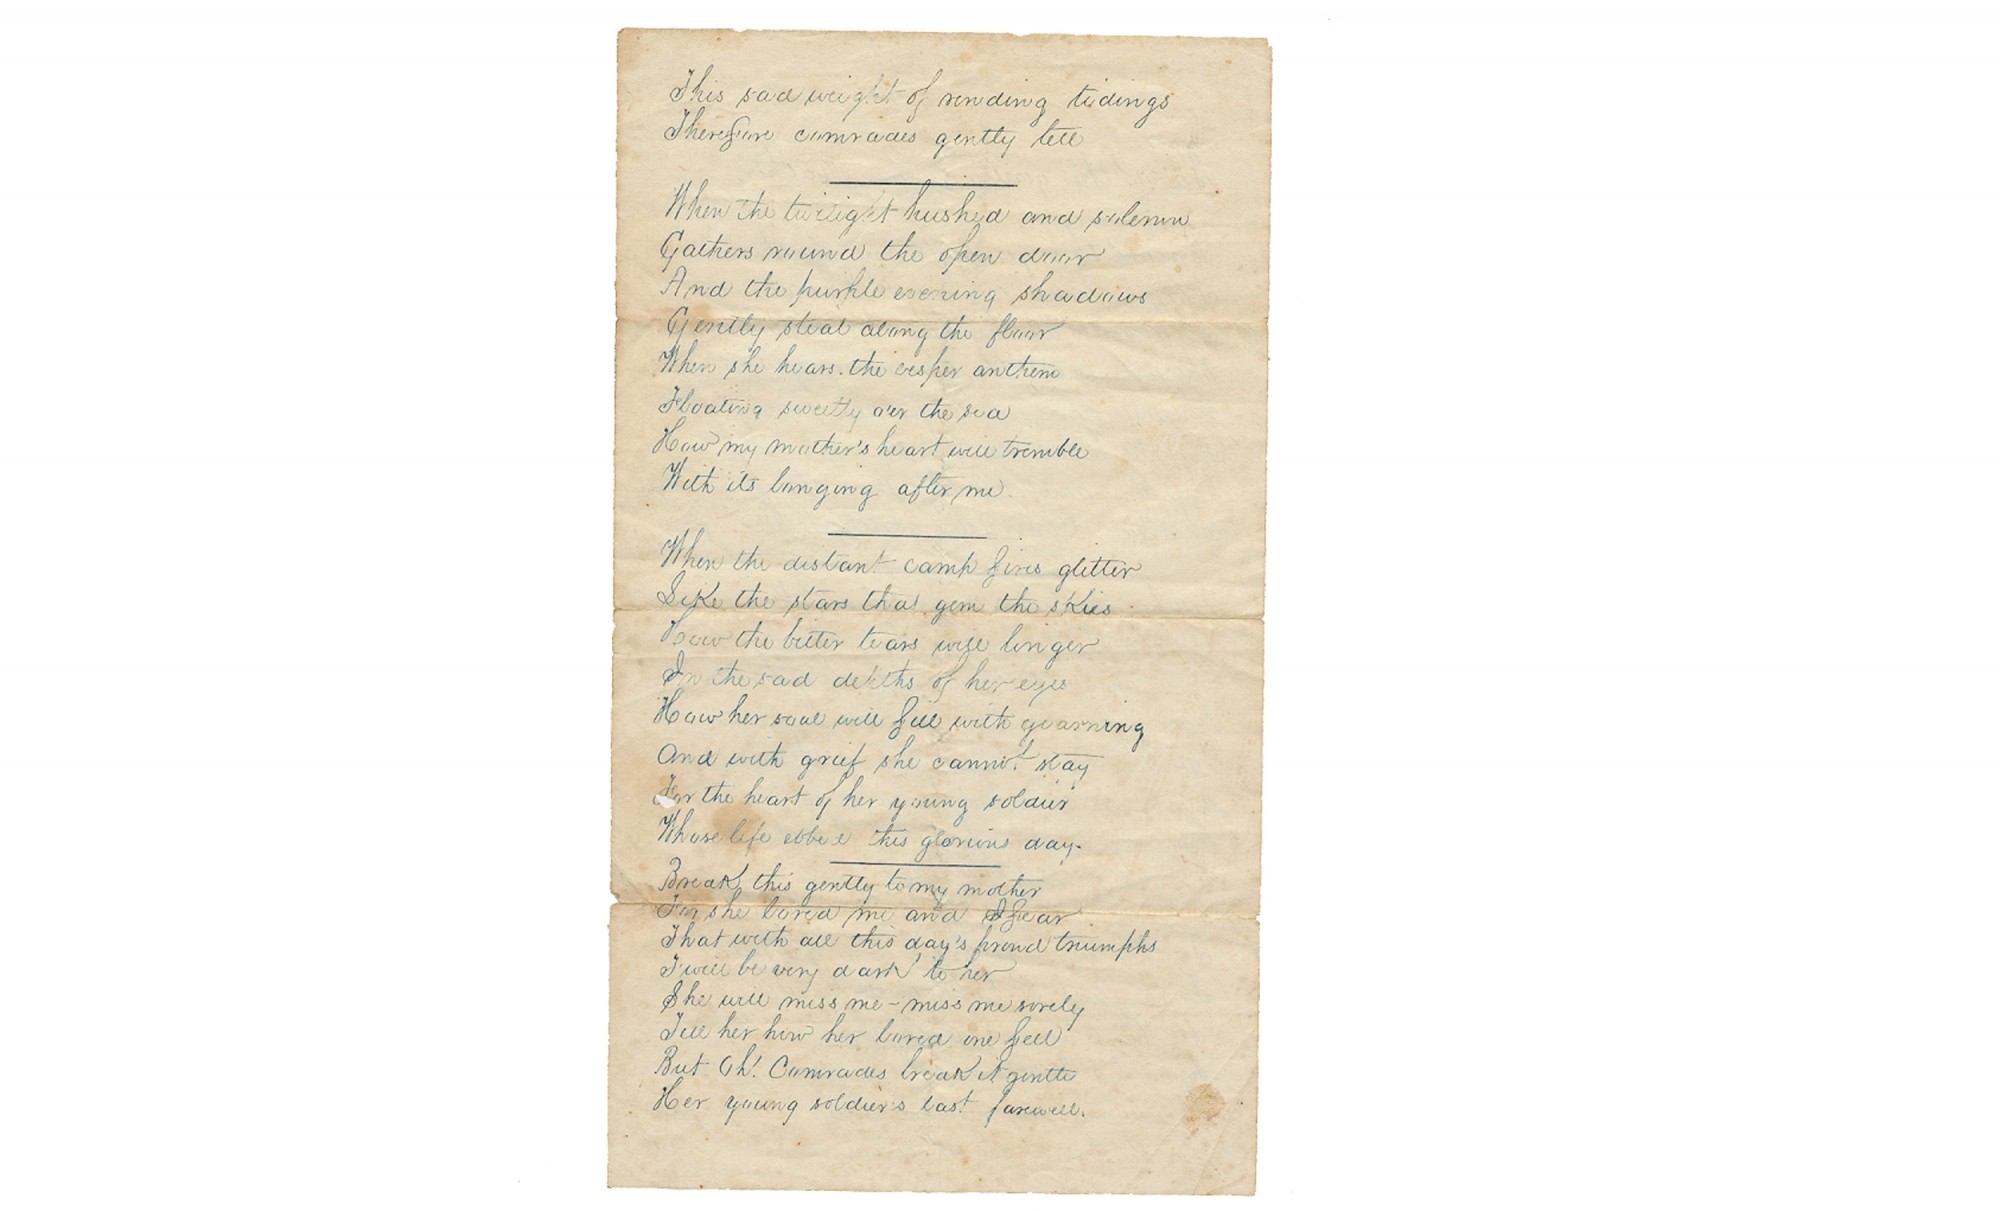 This sad weight of rending tidings
Therefore comrades gently tell
When the twilight hushed and solemn
Gathers round the open door
And the purple evening shadows
Gently steal along the floor
When she hears the vesper anthem
Floating sweetly o'er the sea
How my mother's heart will tremble
With its longing after me.
When the distant camp fires glitter
Like the stars that gem the skies
How the bitter tears will linger
In the sad depths of her eyes
How her soul will fill with yearning
And with grief she cannot stay
For the heart of her young soldier
Whose life ebbed this glorious day.
Break this gently to my mother
For she loved me and I fear
That with all this day's proud triumphs
T'will be very dark to her
She will miss me - miss me sorely
Tell her how her loved one fell
But Oh! Comrades break it gentle
Her young soldier's last farewell.